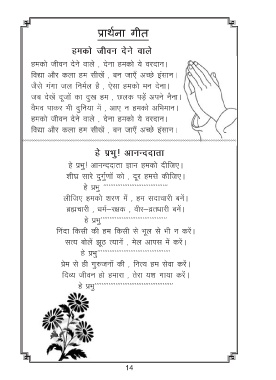 प्रार्थना गीत
हमको जीवन देने वाले
हमको जीवन देने वाले , देना हमको ये वरदान।
विद्या और कला हम सीखें , बन जाएँ अच्छे इंसान।
जैसे गंगा जल निर्मल है , ऐसा हमको मन देना।
जब देखें दूजों का दुख हम , छलक पड़ें अपने नैना।
वैभव पाकर भी दुनिया में , आए न हमको अभिमान।
हमको जीवन देने वाले , देना हमको ये वरदान।
विद्या और कला हम सीखें , बन जाएँ अच्छे इंसान।
हे प्रभु! आनन्ददाता
हे प्रभु! आनन्ददाता ज्ञान हमको दीजिए।
शीघ्र सारे दुर्गुणों को , दूर हमसे कीजिए।
हे प्रभु
लीजिए हमको शरण में , हम सदाचारी बनें।
ब्रह्मचारी , धर्म-रक्षक , वीर-व्रतधारी बनें।
हे प्रभु
निंदा किसी की हम किसी से भूल से भी न करें।
सत्य बोलें झूठ त्यागें , मेल आपस में करें।
हे प्रभु
प्रेम से ही गुरुजनों की , नित्य हम सेवा करें।
दिव्य जीवन हो हमारा , तेरा यश गाया करें।
हे प्रभु
14